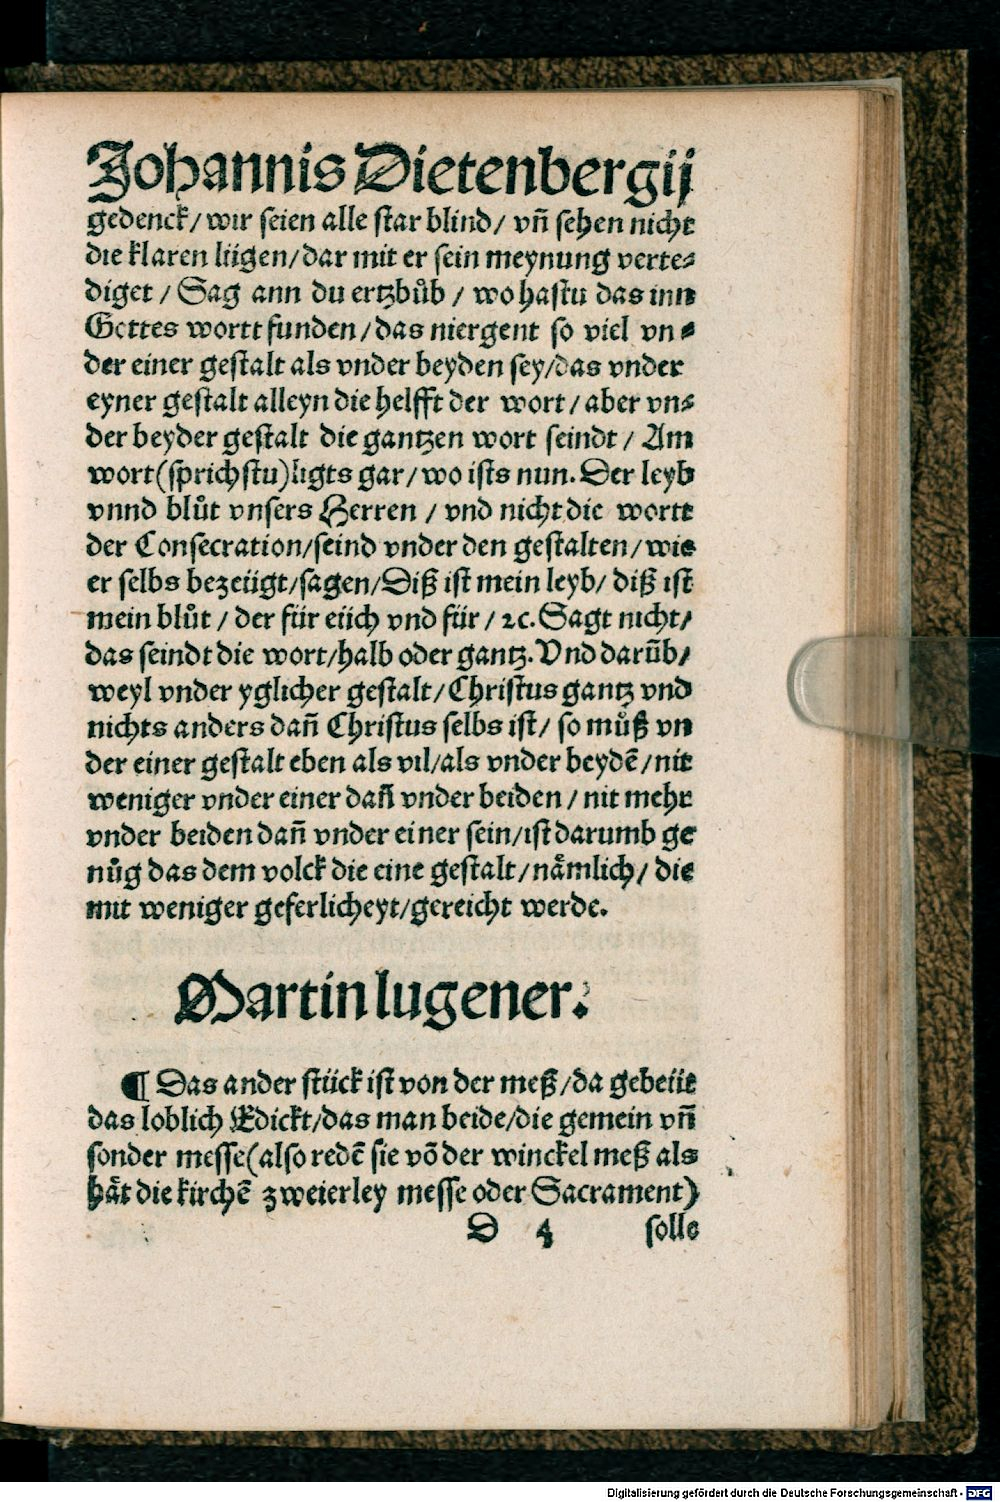 Johannis Dietenbergij
gedenck/ wir seien alle star blind/ vñ sehen nicht
die klaren lügen/dar mit er sein meynung verte⸗
diget / Sag ann du ertzbůb / wo hastu das inn
Gottes wortt funden/das niergent so viel vn⸗
der einer gestalt als vnder beyden sey/das vnder
eyner gestalt alleyn die helfft der wort/ aber vn⸗
der beyder gestalt die gantzen wort seindt / Am
wort(sprichstu)ligts gar/wo ists nun. Der leyb
vnnd blůt vnsers Herren / vnd nicht die wortt
der Consecration/seind vnder den gestalten/wie
er selbs bezeügt/sagen/Diß ist mein leyb/ diß ist
mein blůt / der für eüch vnd für / ꝛc. Sagt nicht/
das seindt die wort/halb oder gantz. Vnd darũb/
weyl vnder yglicher gestalt/Christus gantz vnd
nichts anders dañ Christus selbs ist/ so můß vn
der einer gestalt eben als vil/als vnder beydē/nit
weniger vnder einer dañ vnder beiden / nit mehr
vnder beiden dañ vnder einer sein/ist darumb ge
nůg das dem volck die eine gestalt/nämlich/ die
mit weniger geferlicheyt/gereicht werde.
Martin lugener.
¶ Das ander stück ist von der meß/da gebeüt
das loblich Edickt/das man beide/die gemein vñ
sonder messe(also redē sie võ der winckel meß als
hät die kirchē zweierley messe oder Sacrament)
D 4 solle
Digitalisierung gefördert durch die Deutsche Forschungsgemeinschaft - DFG